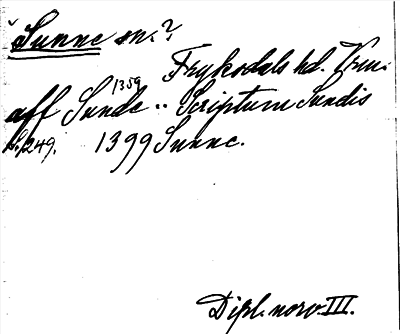 Sunne sn.?
Frykdals hd. Vrml.
aff Sunde 1359 .. Scriptum Sundis
S. 249. 1399 Sunne.
Dipl. norv. III.